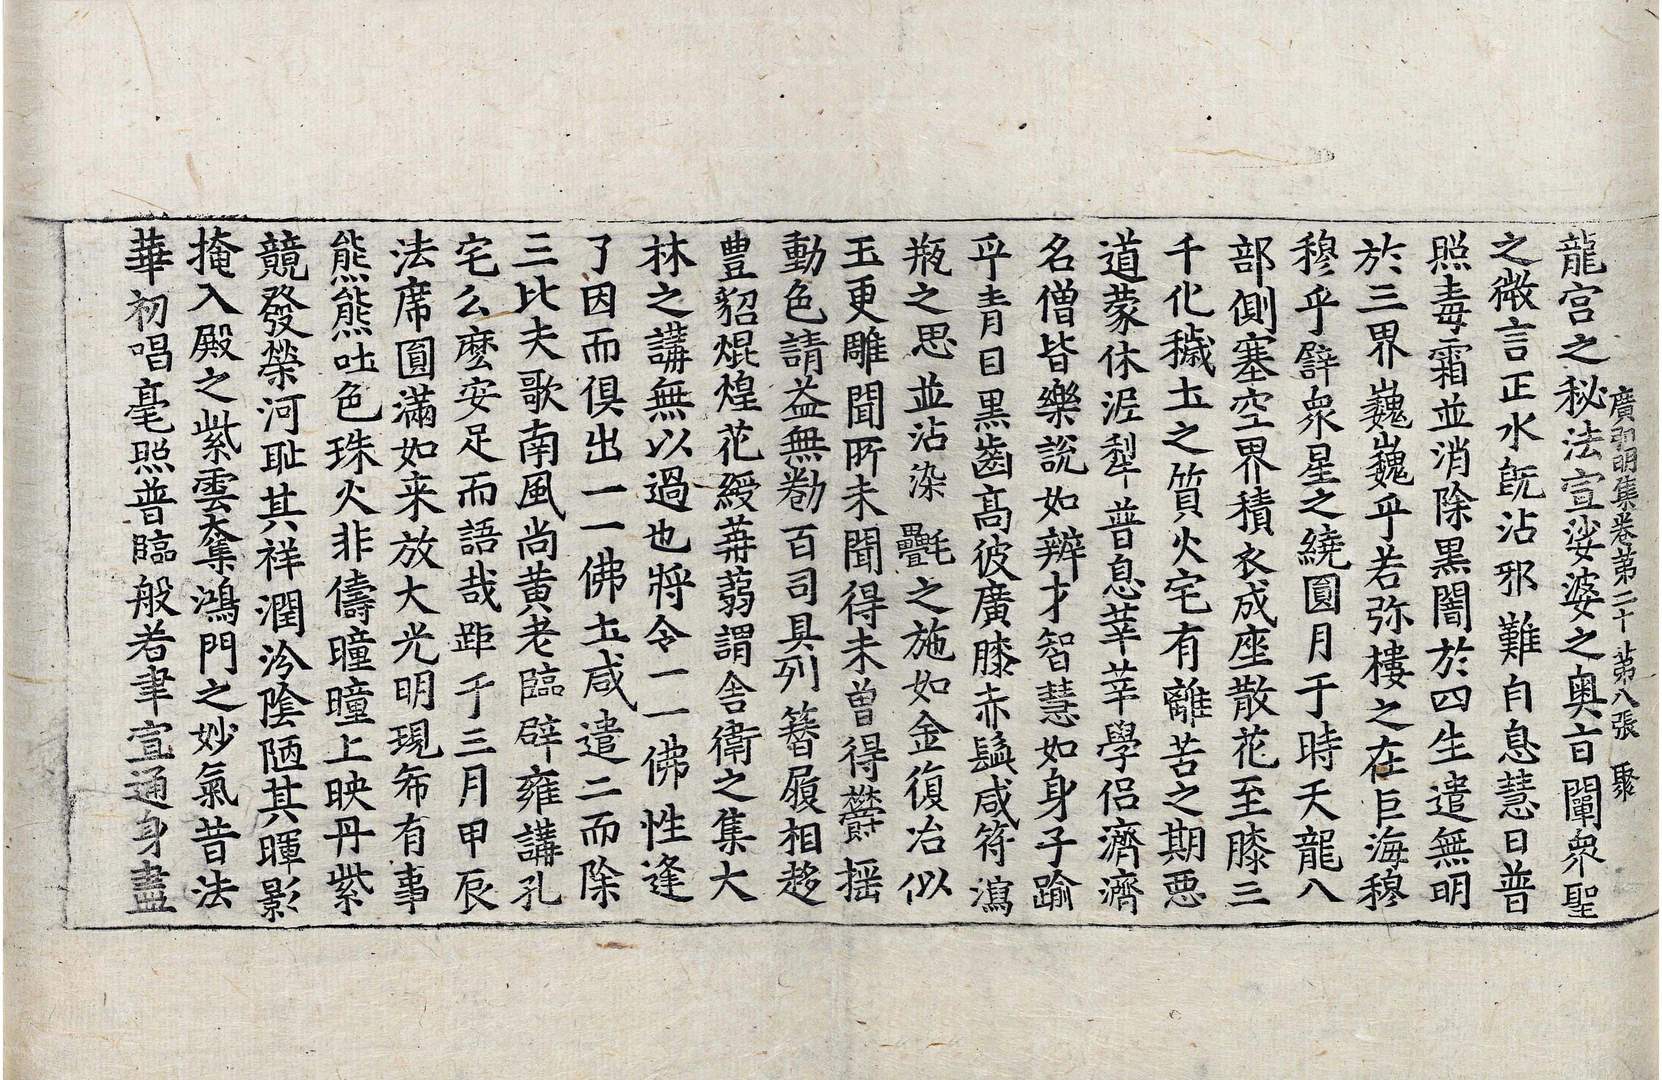 廣弘明集卷第二十 第八張 聚
龍宫之秘法宣娑婆之奥言闡衆聖
之微言正水既沾邪難自息慧日普
照毒霜並消除黒闇於四生遣無明
於三界巍巍乎若弥樓之在巨海穆
穆乎譬衆星之繞圓月于時天龍八
部側塞空界積衣成座散花至膝三
千化穢土之質火宅有離苦之期惡
道蒙休泥犁普息莘莘學侣濟濟
名僧皆樂說如辨才智慧如身子踰
乎青目黒齒高彼廣膝赤髭咸符瀉
瓶之思並沾染㲲之施如金復冶似
玉更雕聞所未聞得未曾得欎摇
動色請益無勌百司具列簪履相趍
豊貂焜煌花綬葬蒻謂舍衛之集大
林之講無以過也將令一一佛性逢
了因而俱出一一佛土咸遣二而除
三比夫歌南風尚黄老臨辟雍講孔
宅么麽安足而語哉距千三月甲辰
法席圓滿如来放大光明現希有事
熊熊吐色珠火非儔曈曈上映丹紫
競發榮河耻其祥潤汵陰陋其暉影
掩入殿之紫雲奪鴻門之妙氣昔法
華初唱毫照普臨般若聿宣通身盡